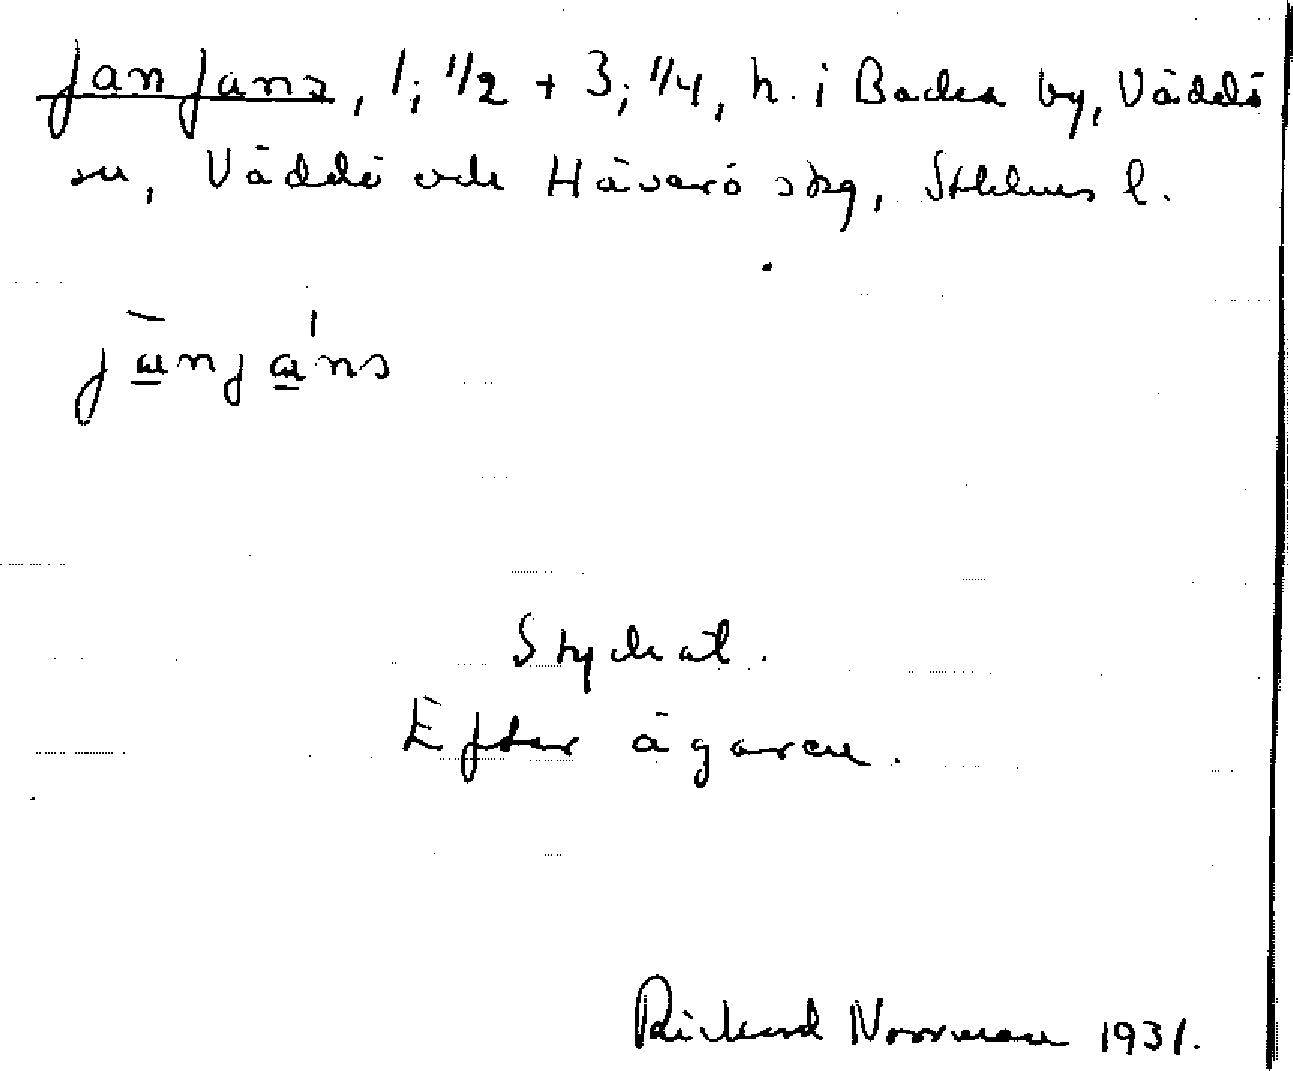 Jan Jans, 1; 1/2 + 3; 1/4, h. i Backa by, Väddö
sn, Väddö och Häverö skg, Sthlms l.
jànjáns
Styckat.
Efter ägaren.
Rickard Norrman 1931.